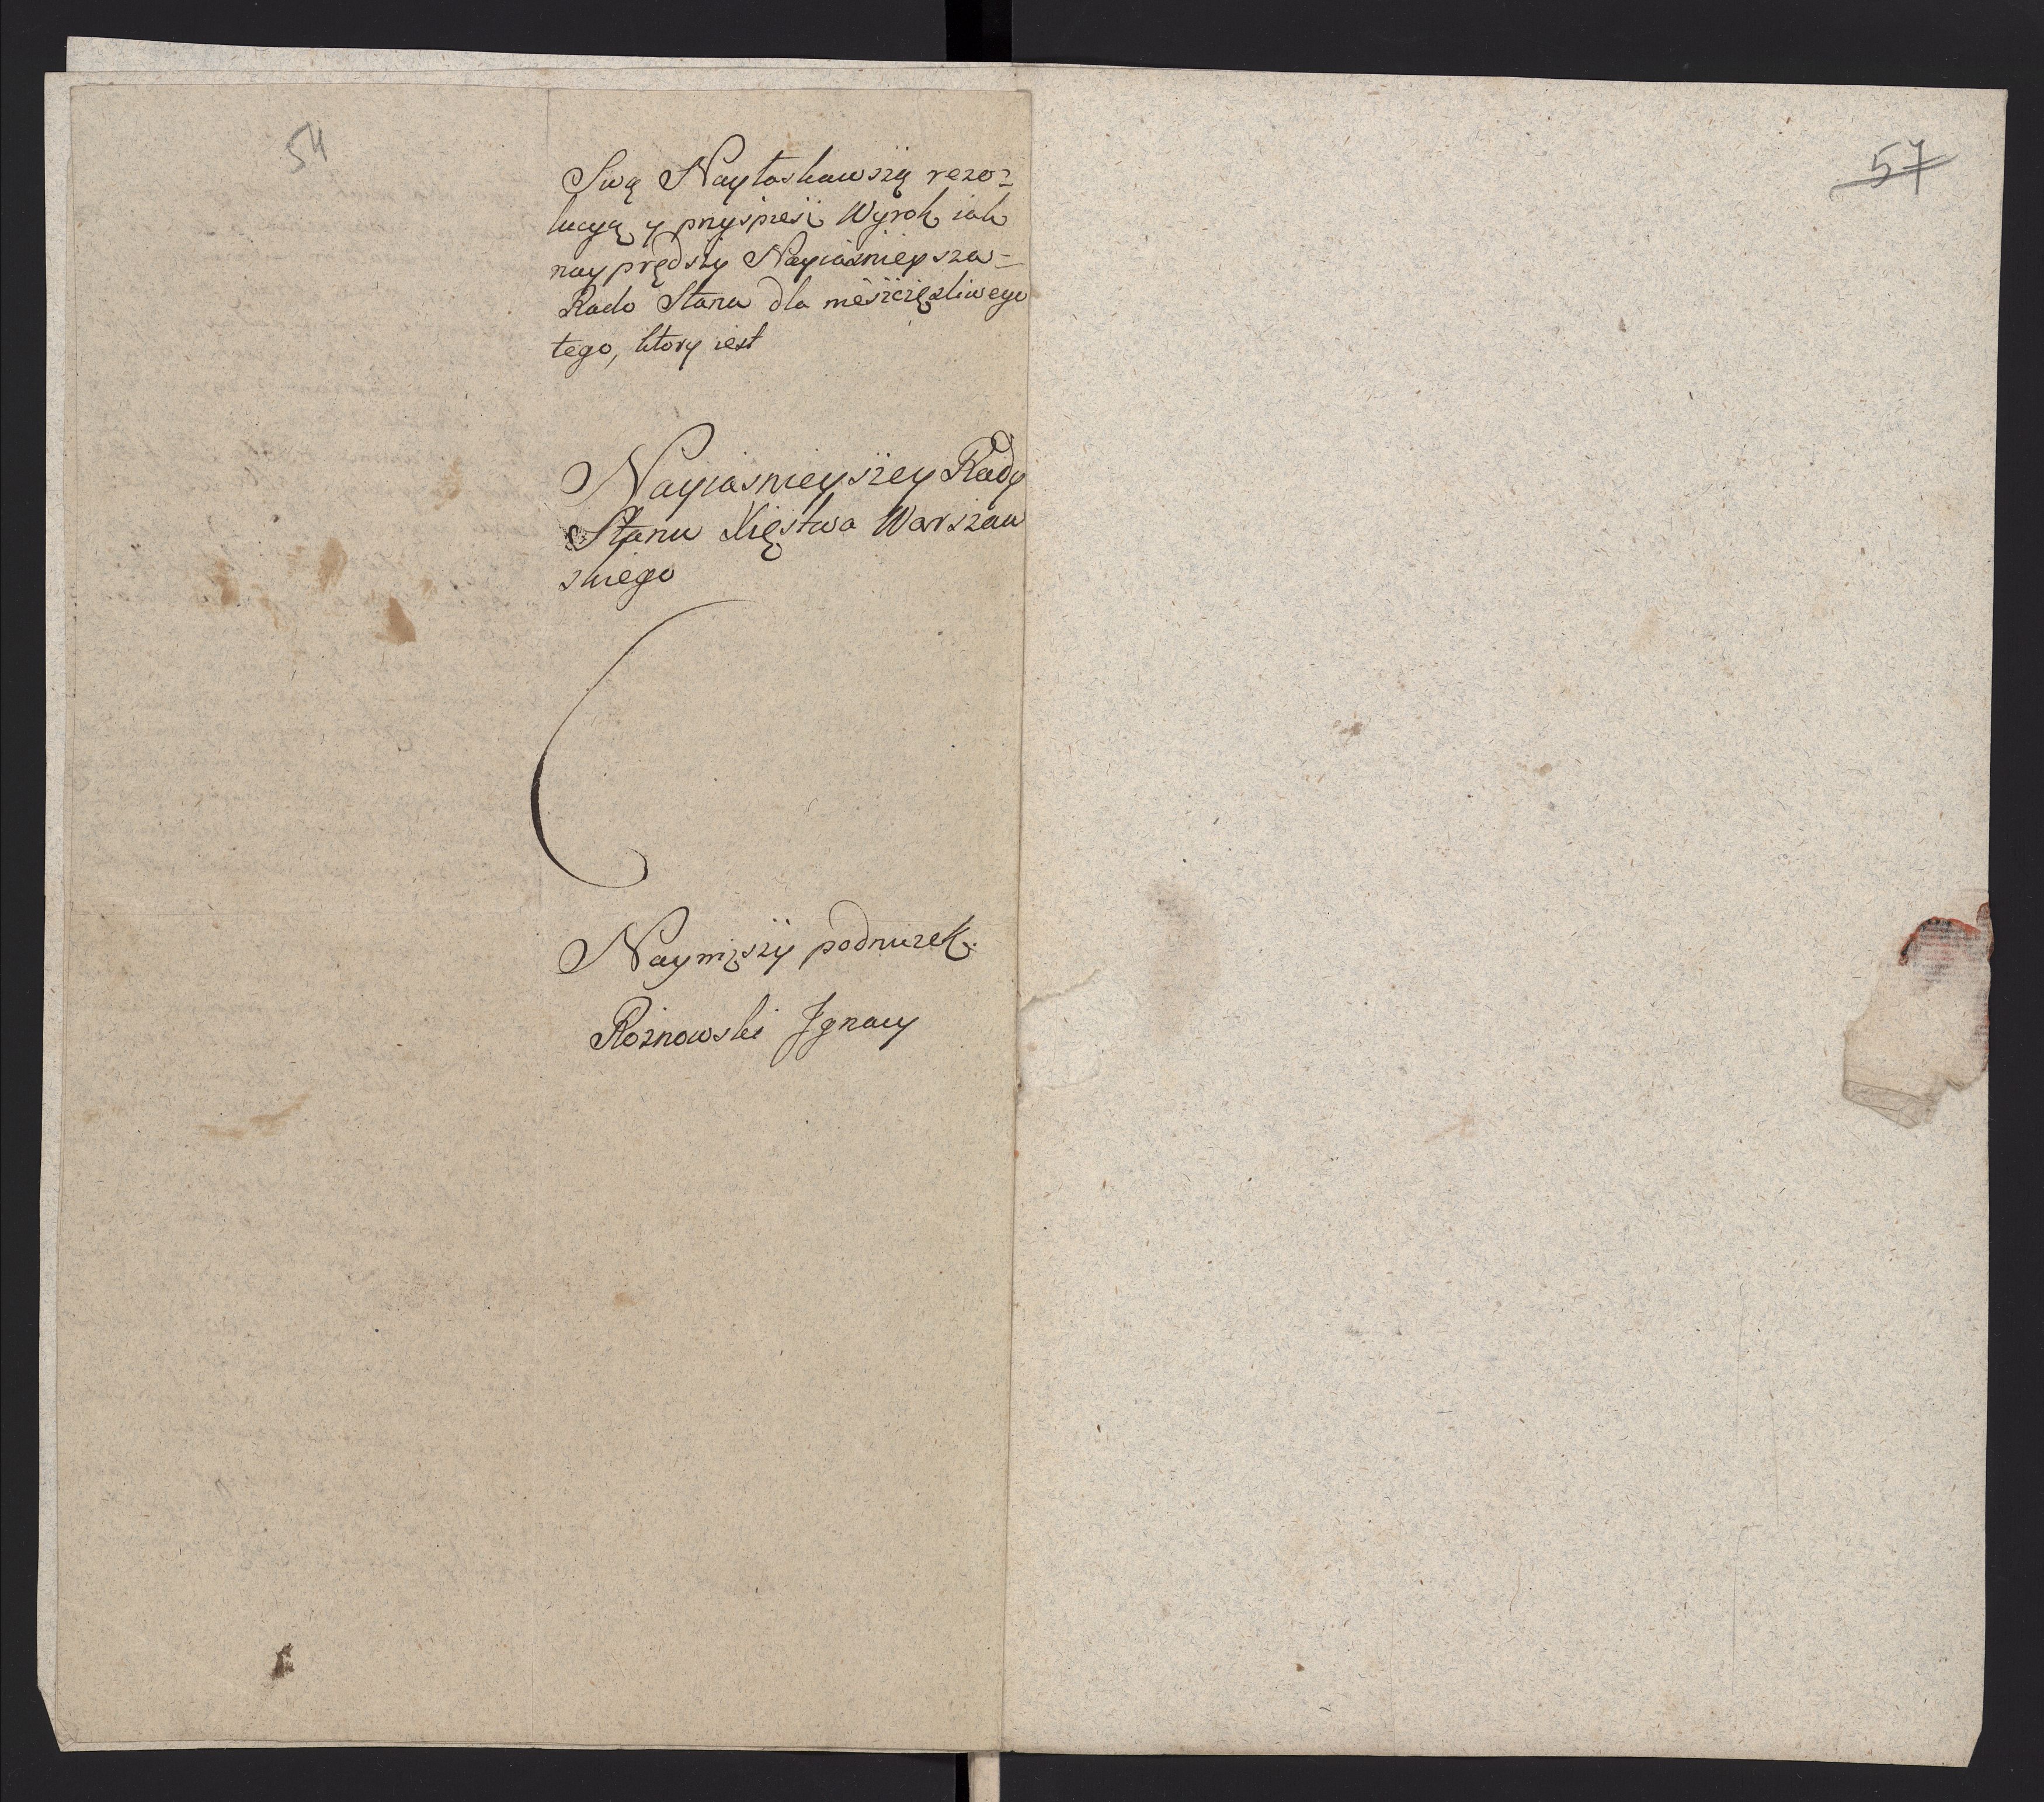 54
Swą Nayłaskawszą rezo=
lucyą y przyśpiesz Wyrok iak
nayprędszy Nayiaśnieysza=
Rado Stanu dla niesczęśliwego
tego, ktory iest
Nayiaśnieyszey Rady
Stanu Xięstwa Warszaw
skiego
Nayniższy podnużek.
Rożnowski Jgnacy
57